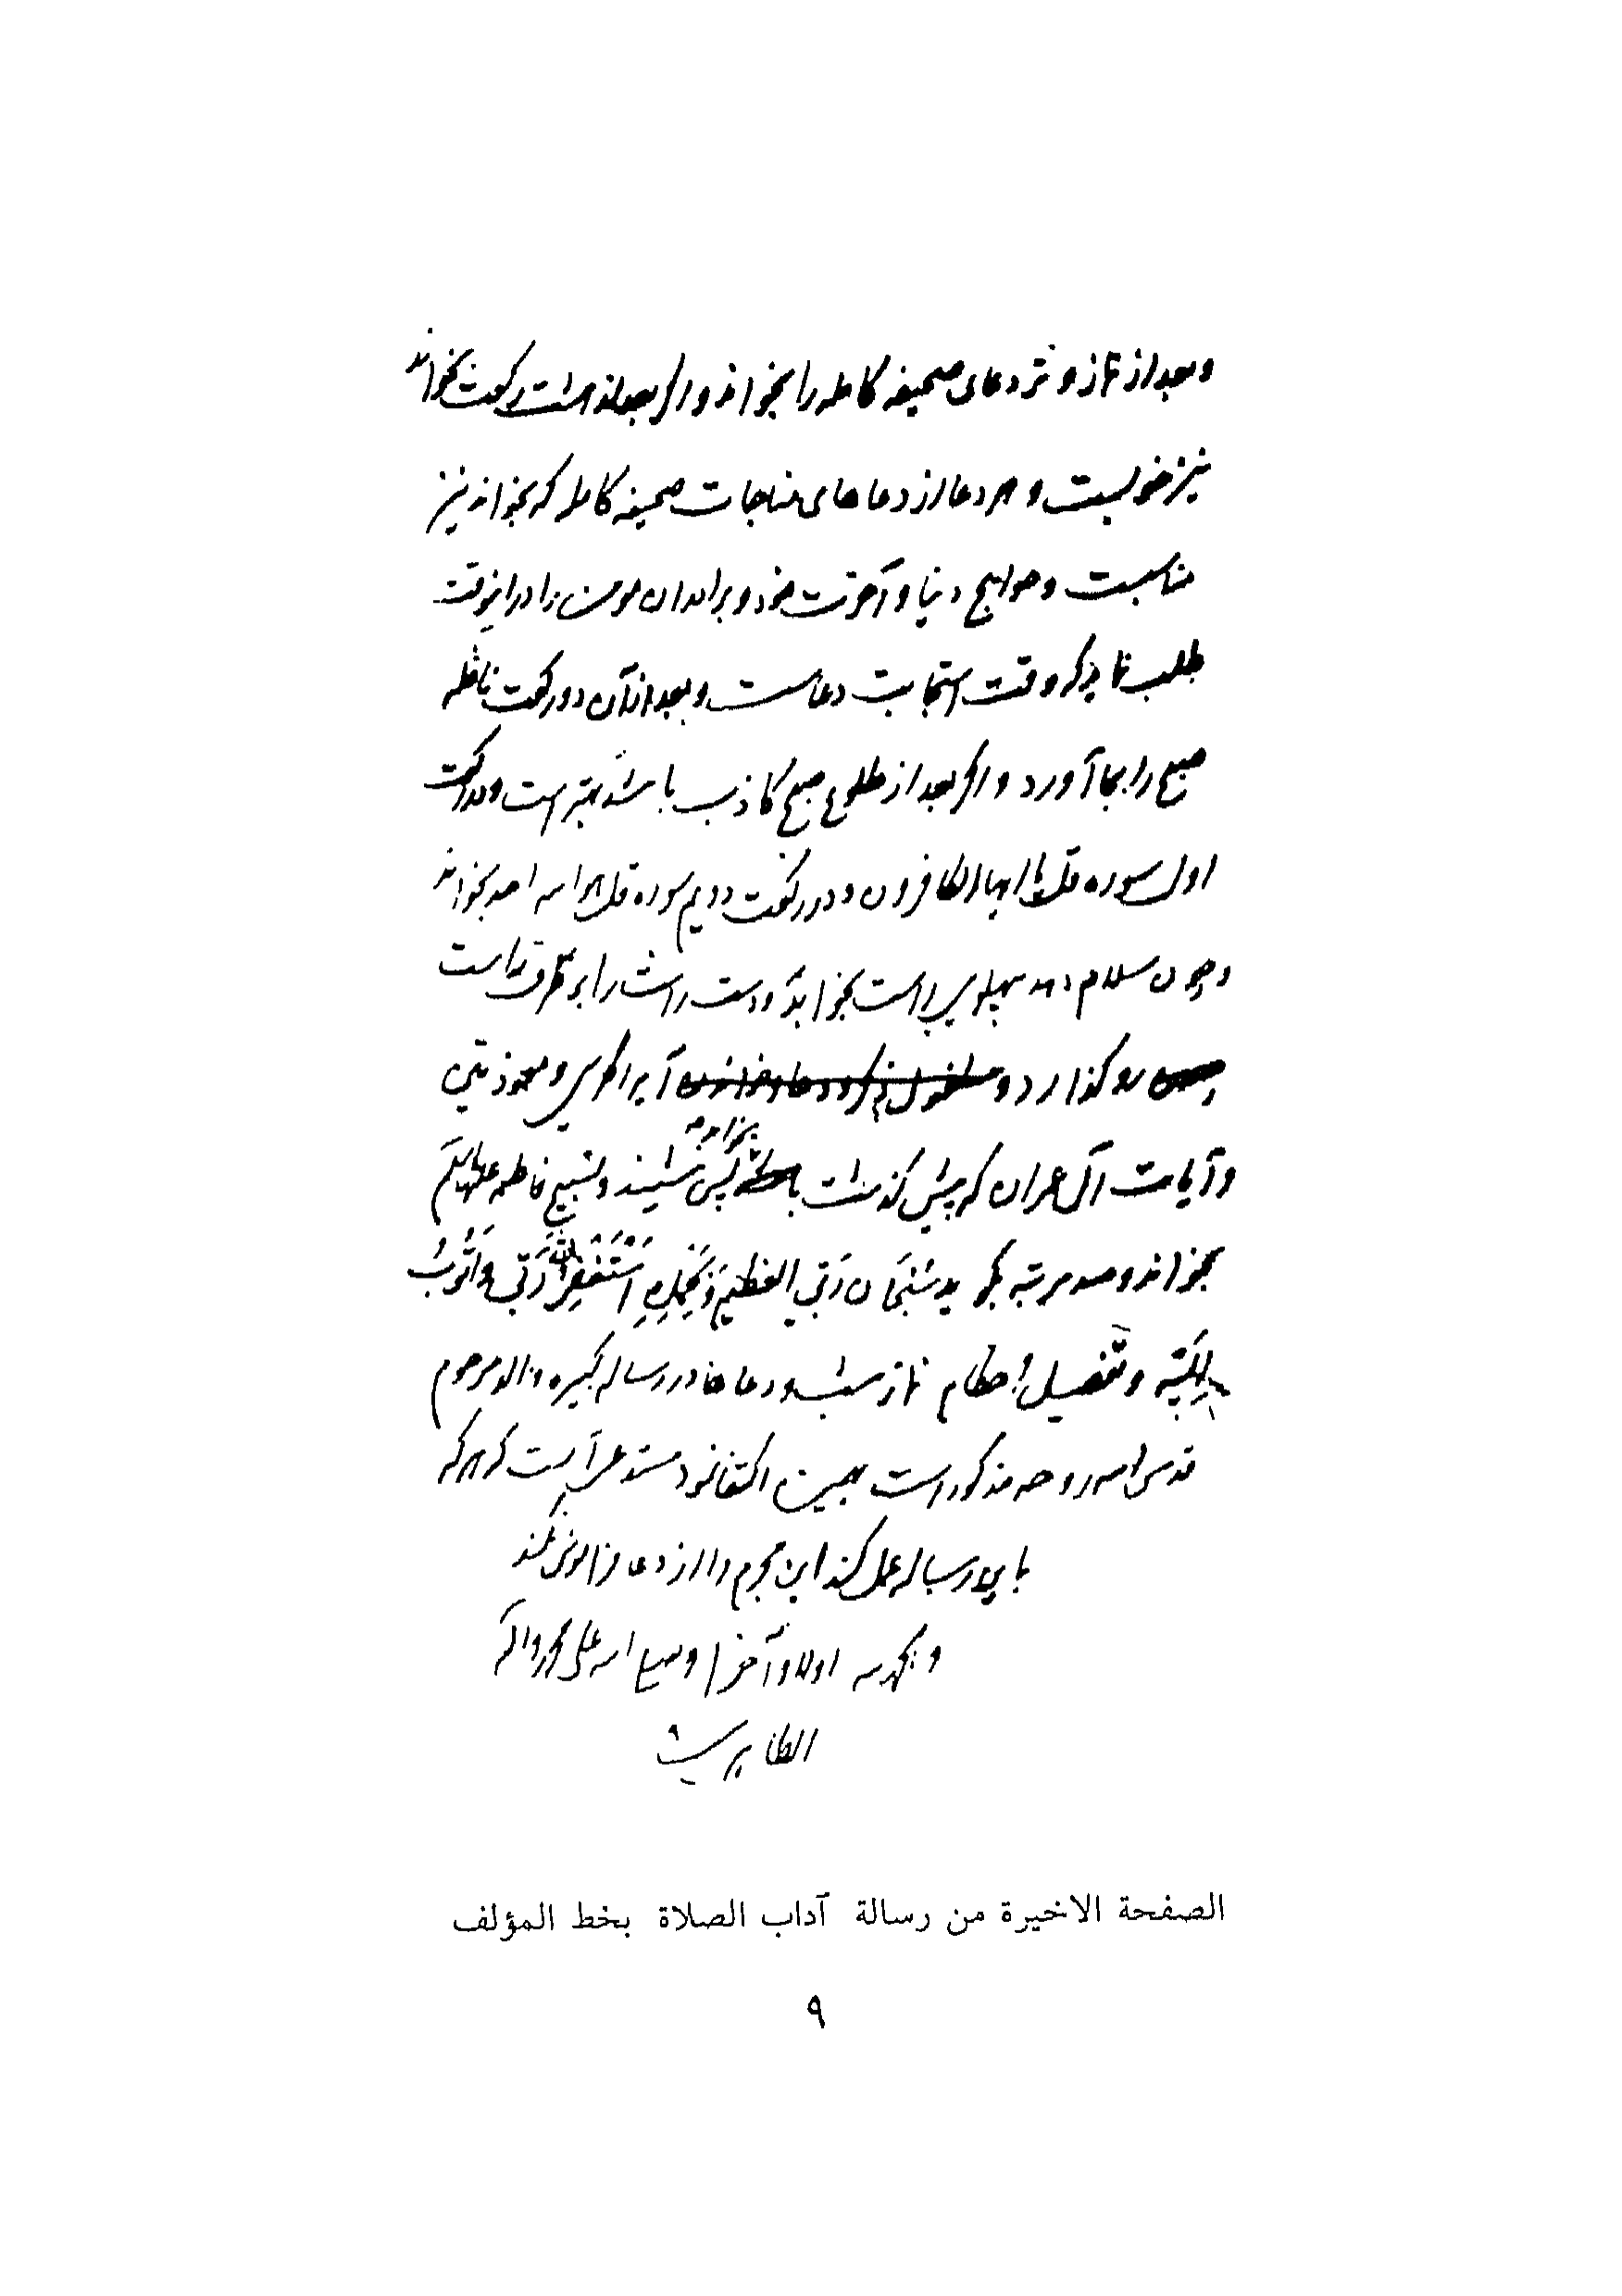 و بعد از نماز وتر دعای صحیفه کامله را بخواند و اگر بعد از هشت رکعت بخواند
نیز خوبست و هر دعا از دعاهای مناجات صحیفه کامله که بخواند نیز
مناسبست و حوایج دنیا و آخرت خود و برادران مومن را در اینوقت
طلب نماید که وقت استجابت دعاست و بعد از آن دو رکعت نافله
صبح را بجا آورد و اگر بعد از طلوع صبح کاذب باشد بهتر است و در رکعت
اول سوره قل یا ایها الکافرون و در رکعت دویم سوره قل هو الله احد بخواند
و چون سلام دهد بپهلوی راست بخوابد و دست راست را بر طرف راست
رو گذارد و مشغول ذکر و دعا و خواندن آیة الکرسی و معوذتین
و آیات آل عمران که پیش گذشت بخواند پس بنشیند و تسبیح فاطمه علیها السلم
بخواند و صد مرتبه بگوید سُبْحَانَ رَبِّيَ العَظِيمِ وَبِحَمْدِهِ اَسْتَغْفِرُ اللّٰهَ رَبِّي وَاَتُوبُ
اِلَيْهِ و تفصیل احکام نماز شب و دعاها در رساله کبیره والد مرحوم
قدس الله روحه مذکور است بهمین اکتفا نمود مستدعی آنست که هر که
باین رساله عمل کند این مجرم را از دعا فراموش نکند
و الحمد لله اولا و آخرا و صلی الله علی محمد و آله
الطاهرین
الصفحة الاخيرة من رسالة آداب الصلاة بخط المؤلف
٩